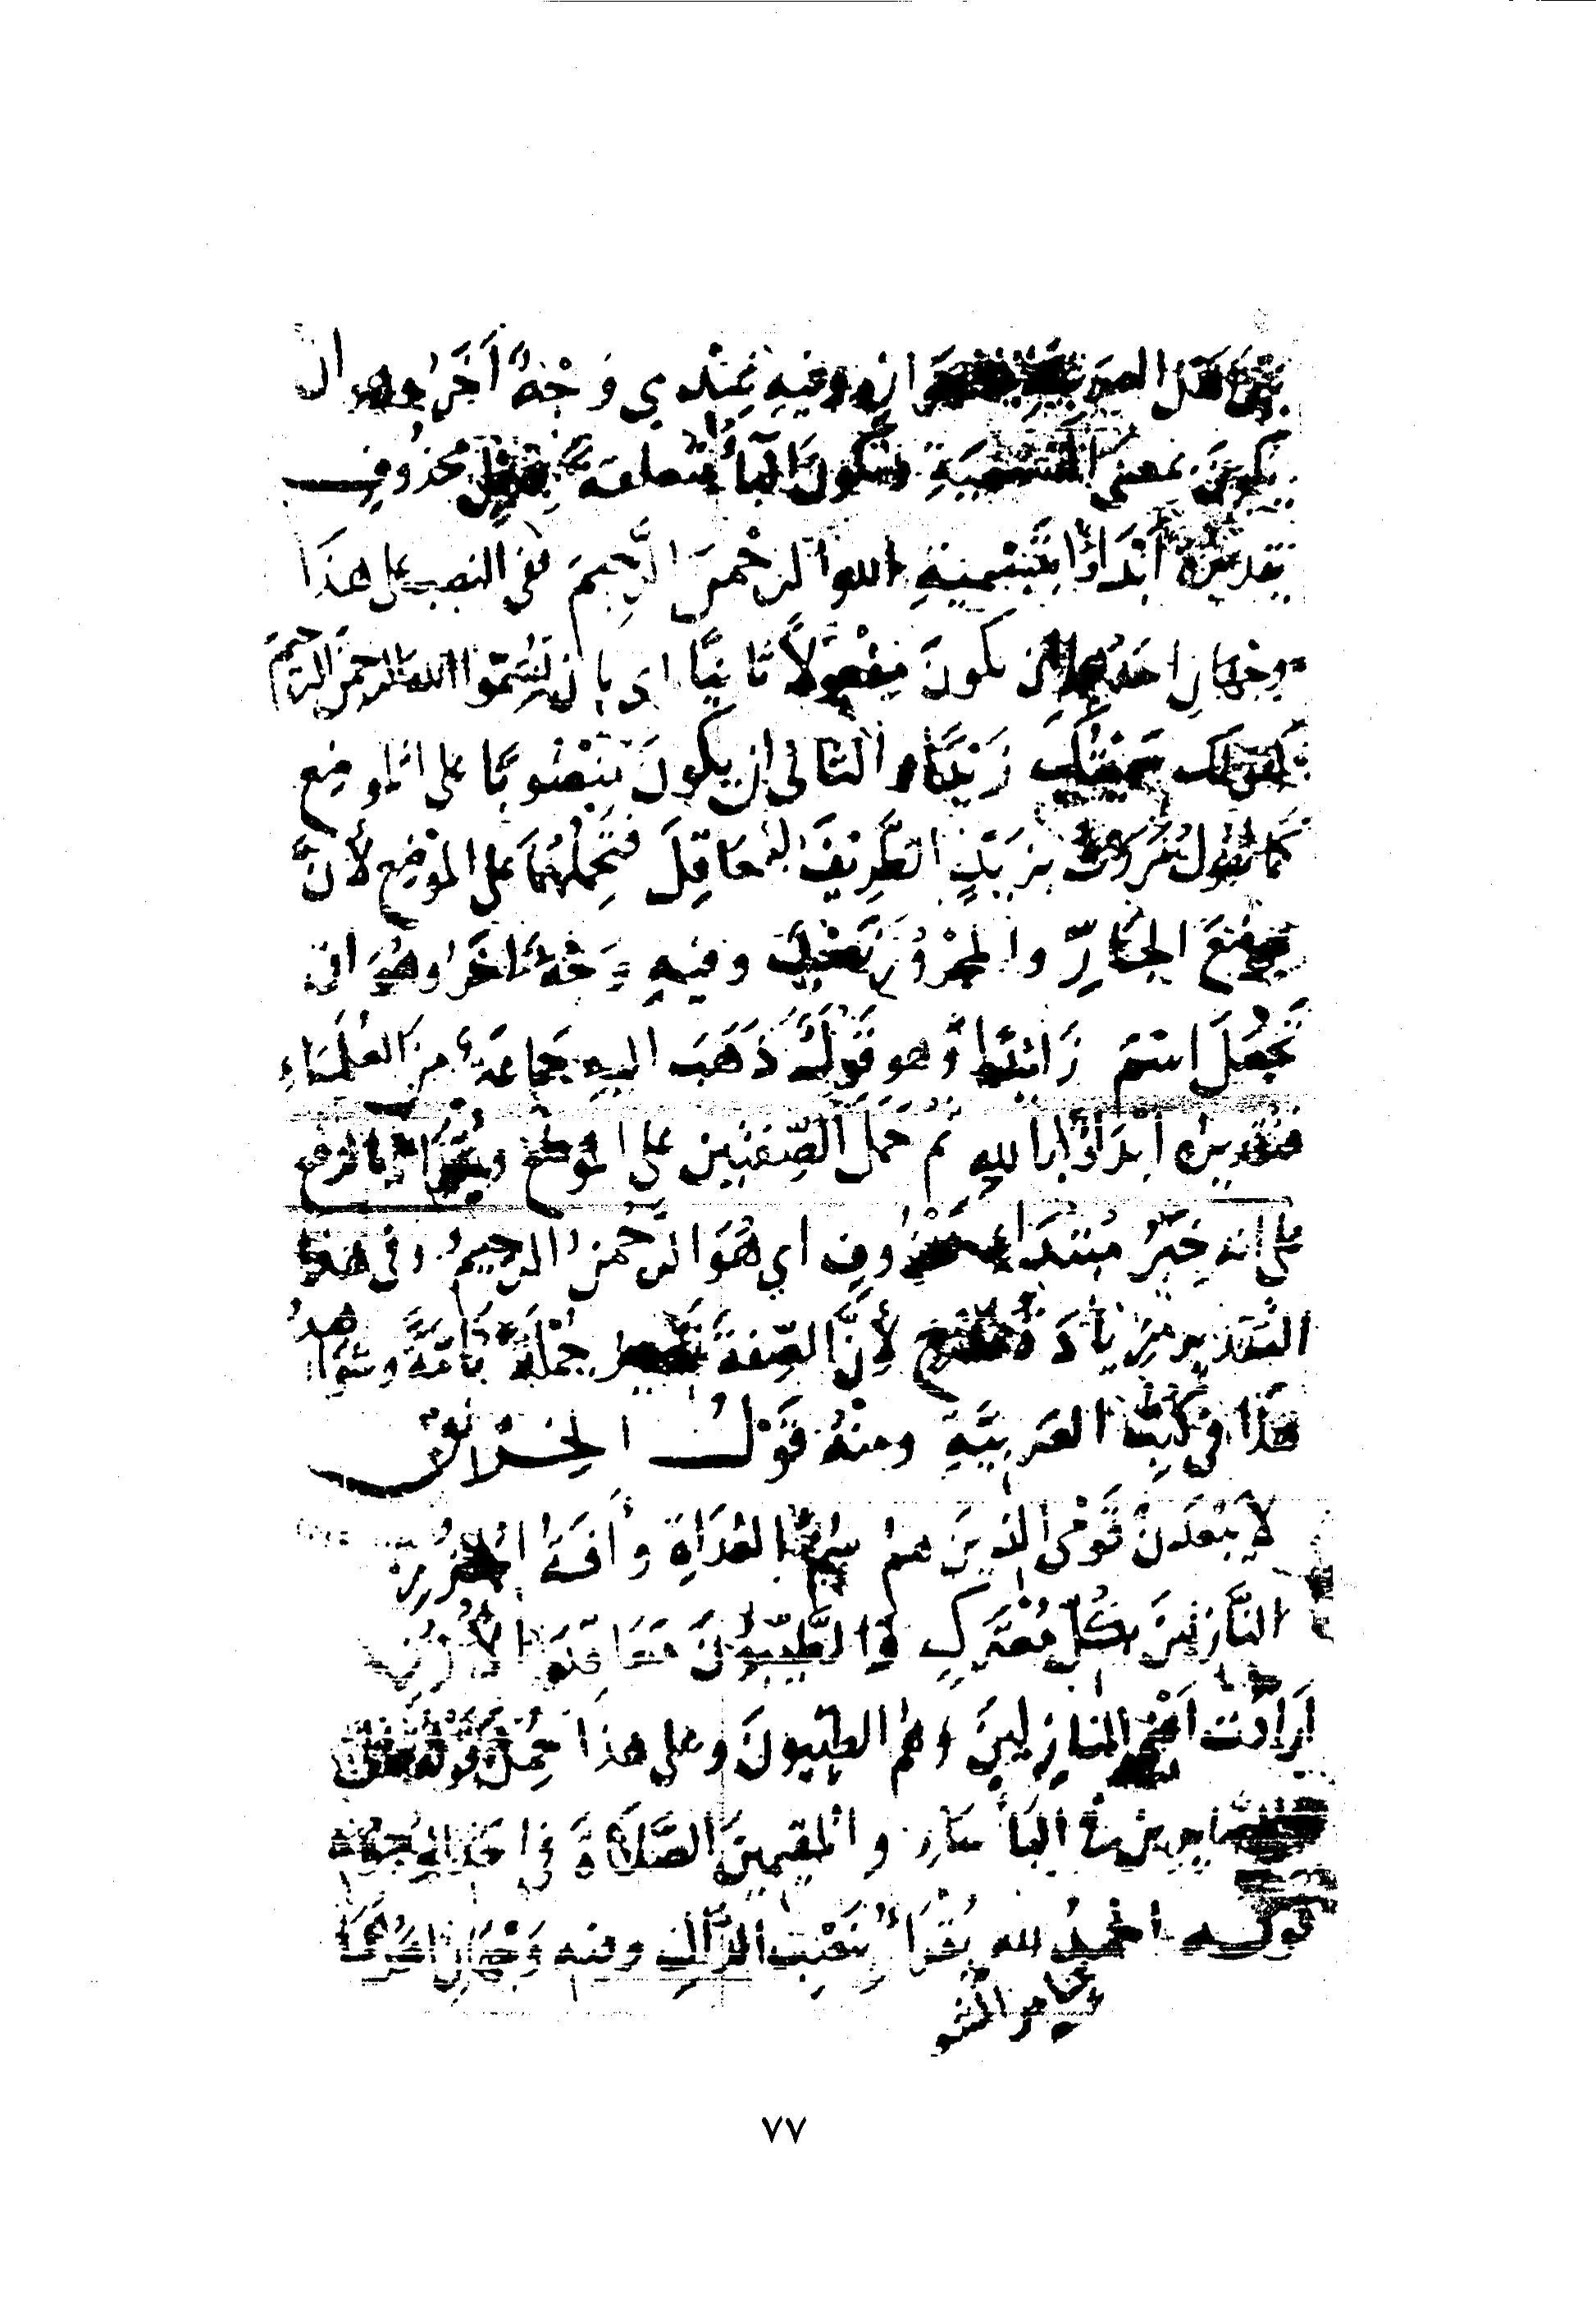 وفيه عندي وجهٌ آخَرُ وهو ان
يكونَ بمعنى التسميةِ فتكونَ الباءُ متعلقةً بفعلٍ محذوفٍ
تقديرُهُ أبْدَأُ بتَسْمِيَةِ اللهِ الرحْمنَ الرَّحِيمَ ففي النصب على هذَا
وجهانِ احدُهما ان يكونَ مفعولاً ثانيًا اى بان تُسَمُّوا الله الرحمنَ الرحيمَ
كقولك سَمَّيْتُكَ زَيْدًا والثاني ان يكونَ مَنْصُوبًا على الموضِع
كما تقولُ مَرَرْتُ بِزَيْدٍ الظَّرِيفَ العَاقِلَ فتَحْمِلُهُمَا على المَوْضِعِ لأنَّ
موضِعَ الجَارِّ والمجْرُورِ نَصْبٌ وفيهِ وَجْهٌ آخَرُ وهُوَ ان
تَجْعَلَ اسْمَ زَائِدًا وهو قَوْلٌ ذَهَبَ اليهِ جَمَاعَةٌ مِنَ العُلَمَاءِ
فتقديرُه ابْدَأُ باللهِ ثم حَمَلَ الصِّفَتَيْنِ على الموضِع ويُقْرَأُ بالرفع
على انه خَبَرُ مبتدَاءٍ محذُوفٍ اي هُوَ الرَّحْمنُ الرحيمُ وفى هذا
التقديرِ زيادَةُ مدْحٍ لأِنَّ الصِّفَةَ تصير جُمْلَةً تامَّةً وشَوَاهِدُ
هَذَا في كُتُبِ العَرَبِيَّةِ ومنْهُ قَوْلُ الخِرْنِقِ
لا يَبْعَدَنْ قَوْمى الذينَ هم سُمُّ العُدَاةِ وآفَةُ الجُزُرِ
النَّازِلينَ بكُلِّ مُعْتَرَكٍ وَالطَّيِّبُونَ مَعَاقِدَ الأُزُرِ
اَرَادَتْ اَمْدَحُ النازلينَ وهم الطيّبونَ وعلى هذا حُمِلَ قَوْلُهُ تعالى
والصَّابرين في البَأْسَاءِ والمقيمينَ الصَّلاَةَ في احَدِ الوجوه
قولُه الحمدُ لله يُقْرَأُ بنَصْبِ الدَّالِ وفيه وَجْهَانِ احَدُهُمَا

٧٧